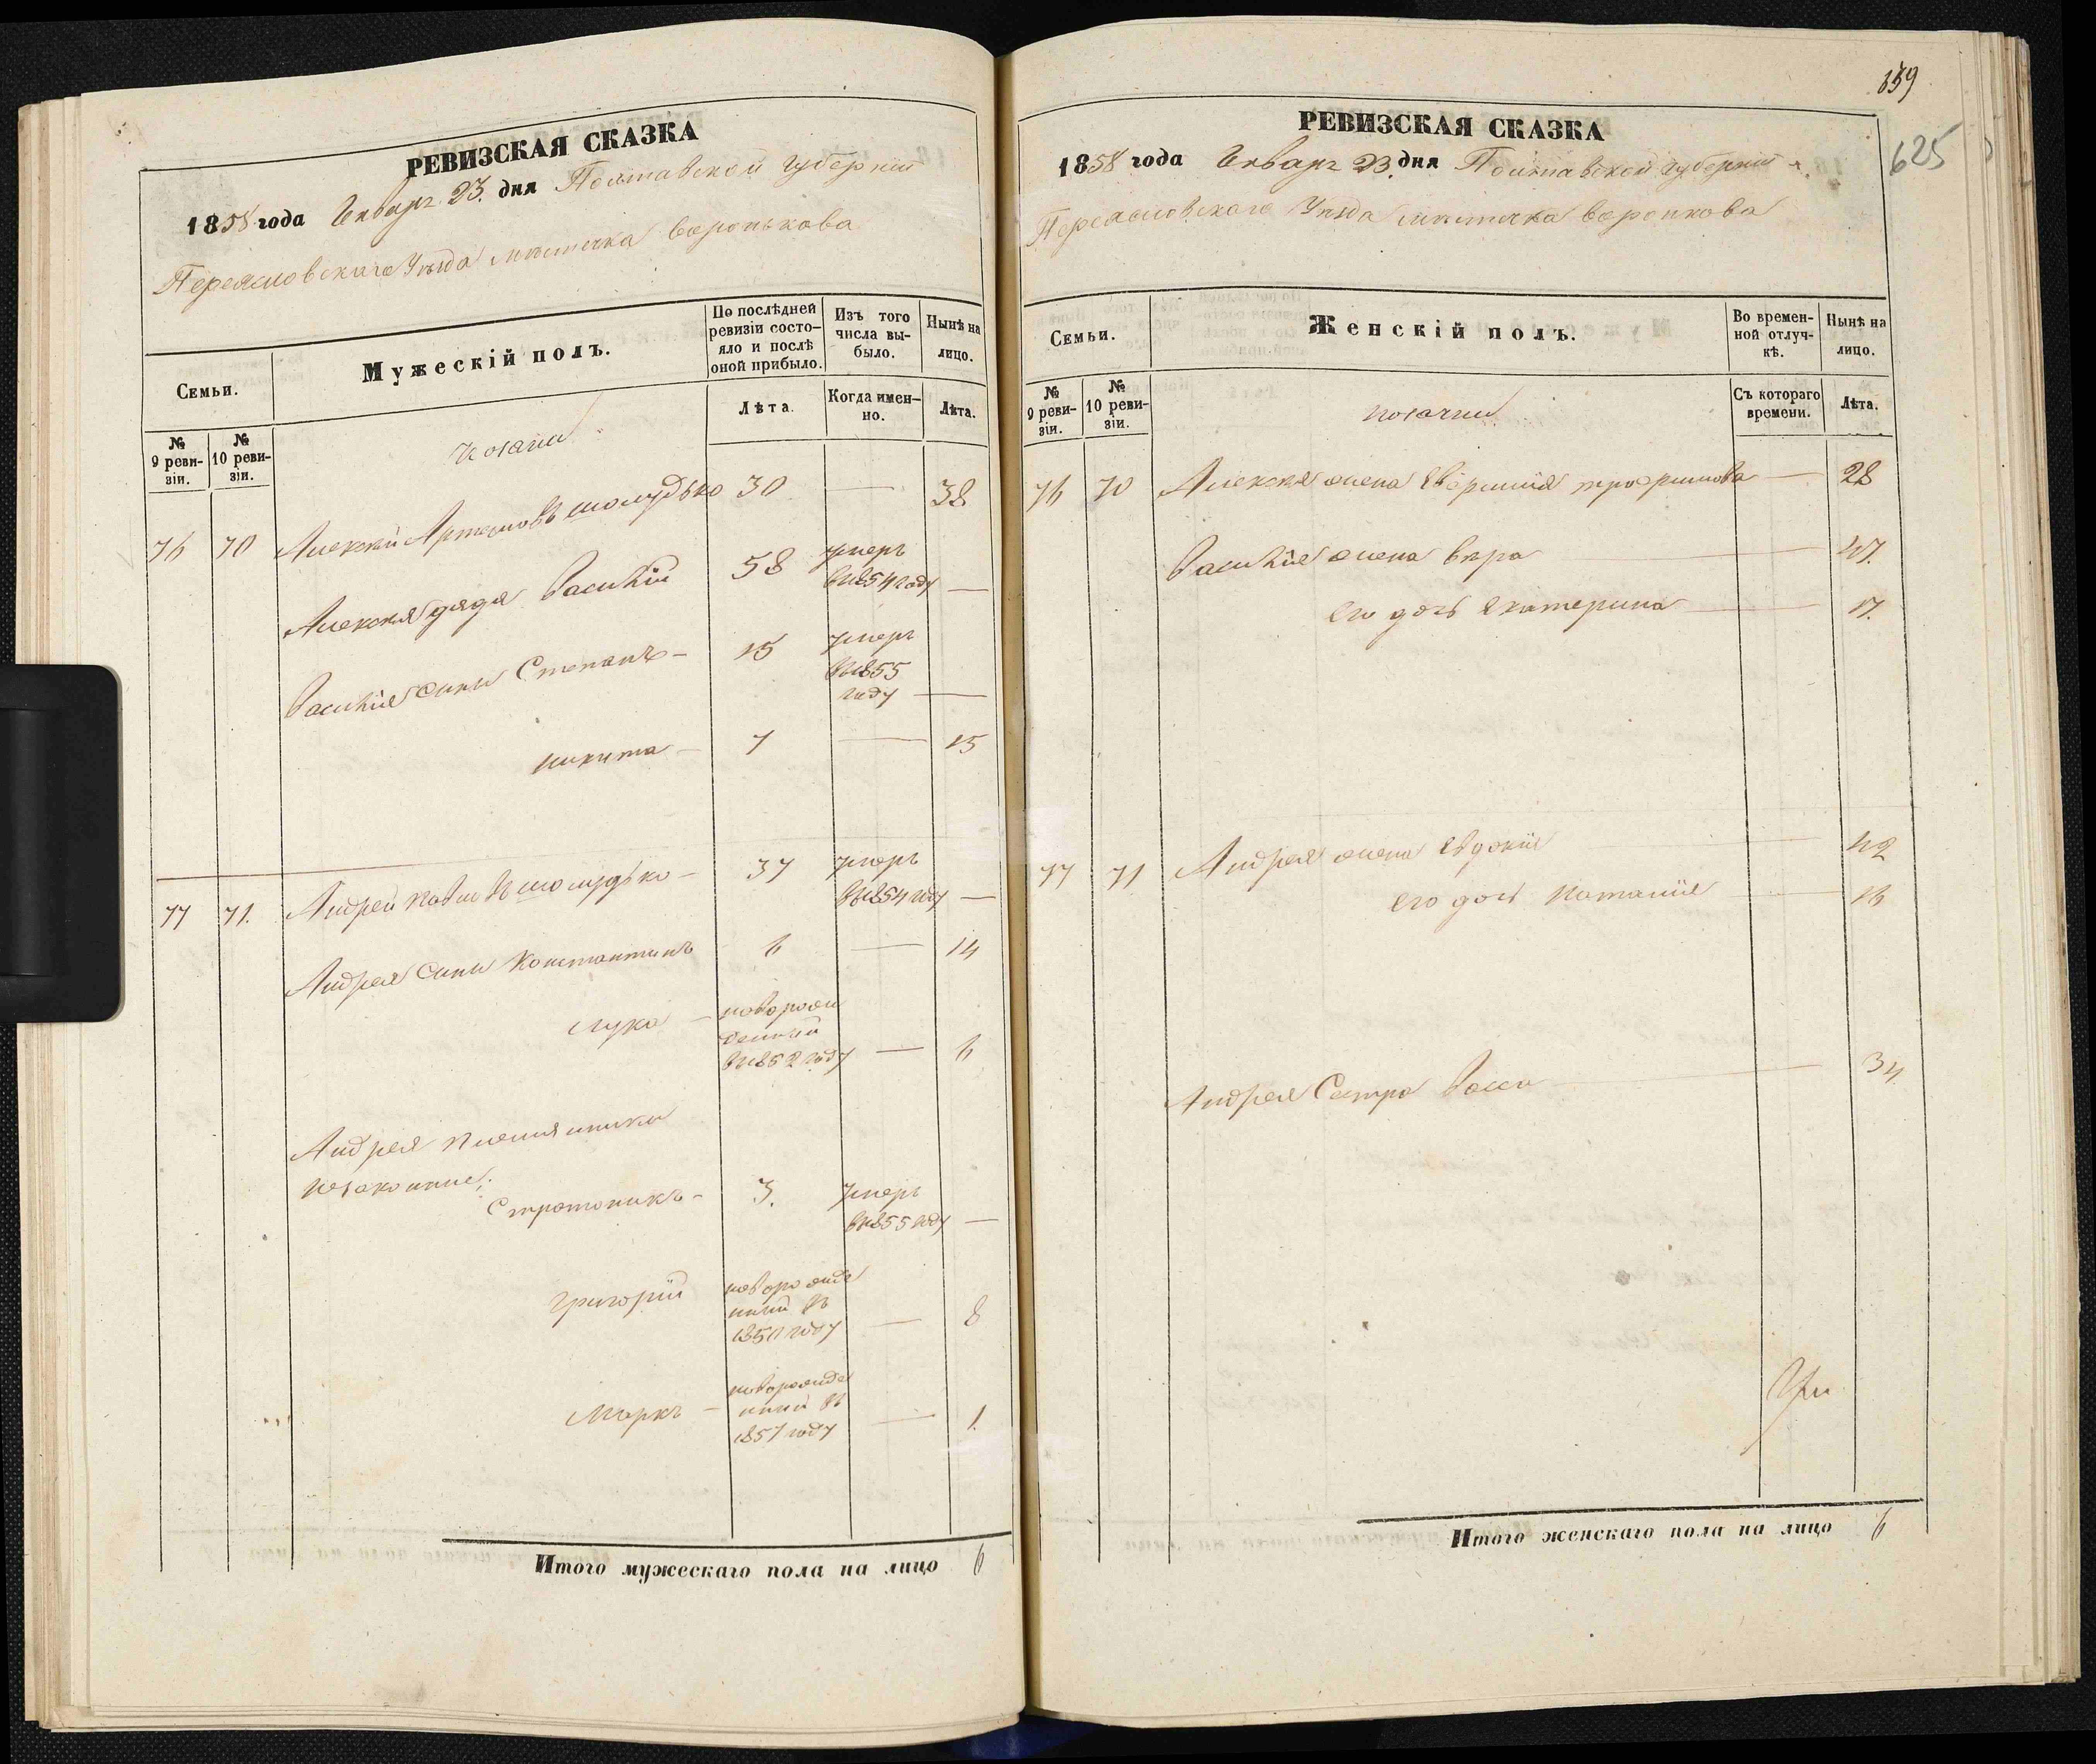 РЕВИЗСКАЯ СКАЗКА
1858 года Генваря 23. дня Полтавской губерніи
Переясловскаго Уѣзда мѣстечка Воронькова
Семьи.
Мужескій полъ.
По послѣдней ревизіи состояло и послѣ оной прибыло.
Изъ того числа выбыло.
Нынѣ на лицо.
№ 9 ревизіи.
№ 10 ревизіи.
Лѣта.
Когда именно.
Лѣта.
козаки
76 70 Алексей Артемовъ Шолудько 30 — 38
Алексея дядя Василій 58 умеръ
въ 1854 году —
Василія сыны Степанъ — 15 умеръ
въ 1855
году —
Никита — 7 — 15
77 71. Андрей Павловъ Шолудько — 37 умеръ
въ 1854 году —
Андрея сыны Константинъ 6 — 14
Лука — новорож
денный
въ 1852 году — 6
Андрея племянники
незаконные;
Стратоникъ — 3. умеръ
въ 1855 году —
Григорій новорожде
нный въ
1850 году — 8
Маркъ — новорожде
нный въ
1857 году — 1.
Итого мужескаго пола на лицо 6
839
625
РЕВИЗСКАЯ СКАЗКА
1858 года Генваря 23. дня Полтавской губерніи
Переясловскаго Уѣзда мѣстечка Воронкова
Семьи.
Женскій полъ.
Во временной отлучкѣ.
Нынѣ на лицо.
№ 9 ревизіи.
№ 10 ревизіи.
Съ котораго времени.
Лѣта.
козачки
76 70 Алексея жена — 28
Василія жена Вера — 47.
его дочь Екатерина — 17.
77 71 Андрея жена Евдокія — 42
его дочь Наталія — 16
Андрея Сестра Васса — 34
Итого женскаго пола на лицо 6